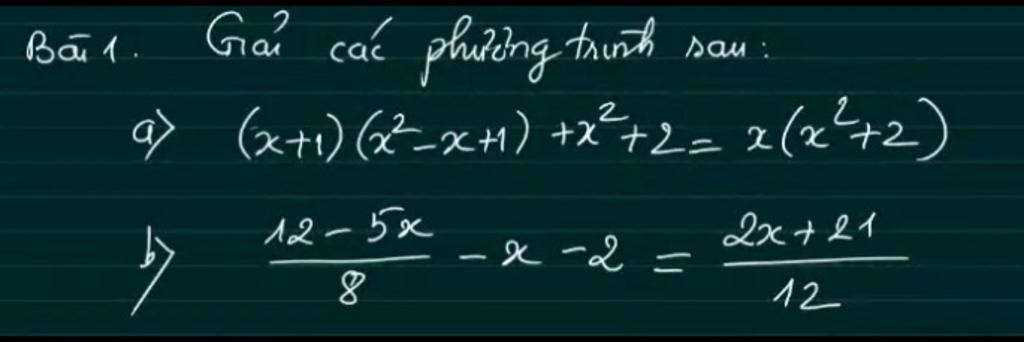 Bài 1. Giải các phương trình sau:
a) (x+1)(x²-x+1) +x²+2 = x(x²+2)
b) \frac{12-5x}{8} - x - 2 = \frac{2x+21}{12}